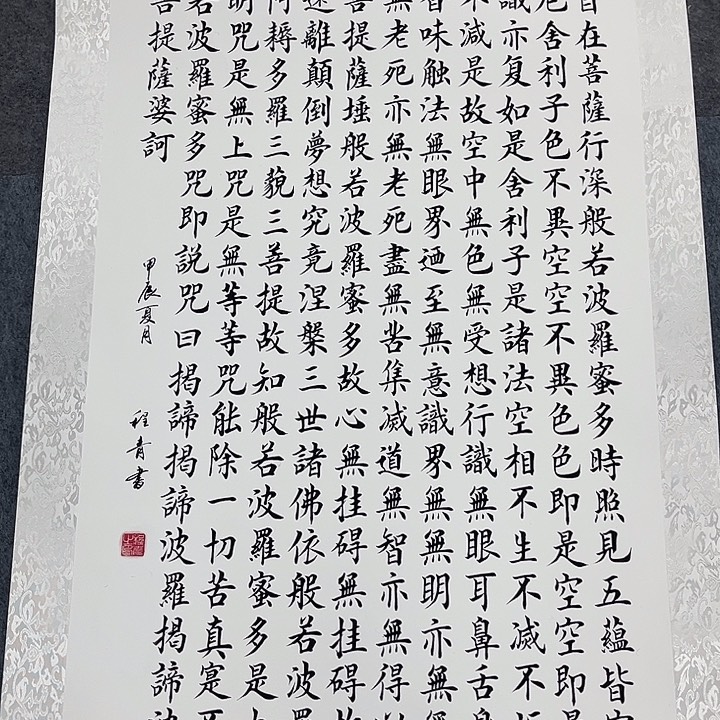 在菩薩行深般若波羅蜜多時照見五蘊皆
厄舍利子色不異空空不異色色即是空空即是
識亦复如是舍利子是諸法空相不生不滅不
不減是故空中無色無受想行識無眼耳鼻舌身
香味触法無眼界迺至無意識界無無明亦無
無老死亦無老死盡無苦集滅道無智亦無得
菩提薩埵般若波羅蜜多故心無挂碍無挂碍故
遠離顛倒夢想究竟涅槃三世諸佛依般若波羅
阿耨多羅三藐三菩提故知般若波羅蜜多是
明咒是無上咒是無等等咒能除一切苦真寔不
若波羅蜜多咒即說咒曰揭諦揭諦波羅揭諦波
菩提薩婆訶
甲辰夏月
程青書